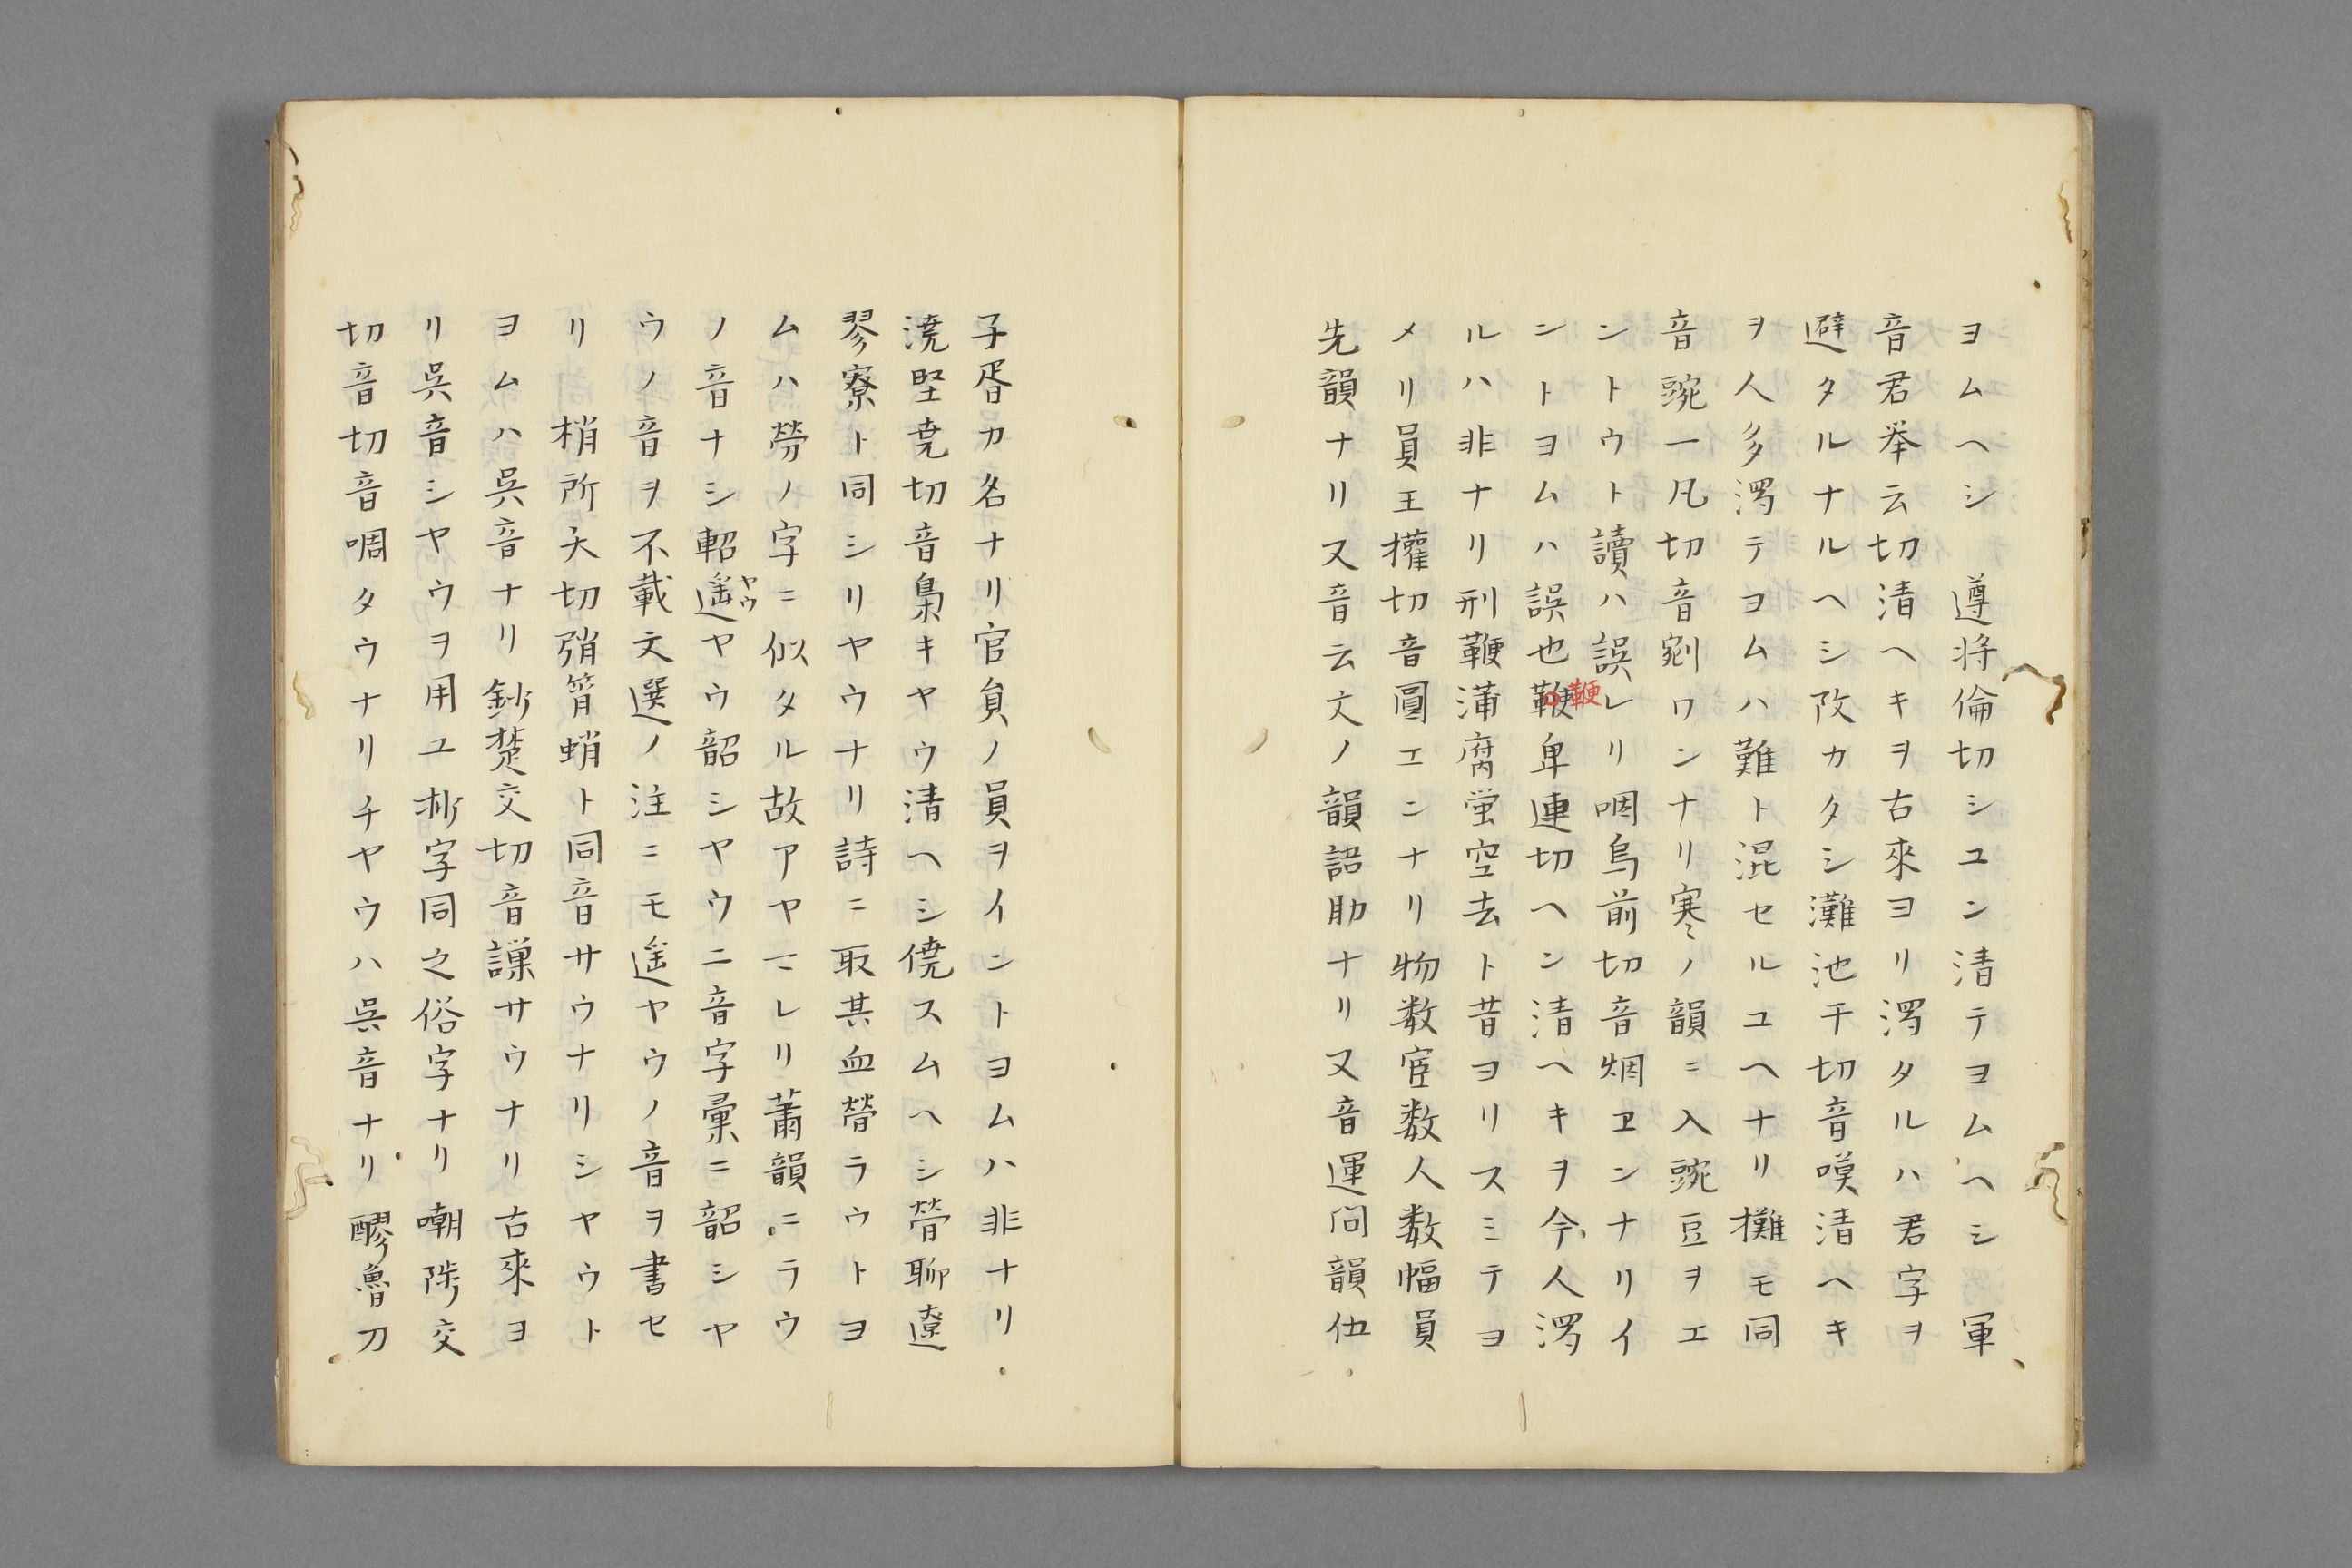 ヨムヘシ　遵将倫切シユン清テヨムヘシ　軍
音君挙云切清ヘキヲ古來ヨリ濁タルハ君字ヲ
避タルナルヘシ改カタシ灘池干切音嘆清ヘキ
ヲ人多濁テヨムハ難ト混セルユヘナリ攤モ同
音豌一凡切音剜ワンナリ寒ノ韻ニ入豌豆ヲエ
ントウト讀ハ誤レリ咽烏前切音烟ヱンナリイ
ントヨムハ誤也鞭卑連切ヘン清ヘキヲ今人濁
鞭
ルハ非ナリ刑鞭蒲腐蛍空去ト昔ヨリスミテヨ
メリ員王權切音圓エンナリ物数官数人数幅員
先韻ナリ又音云文ノ韻語助ナリ又音運問韻伍
子胥カ名ナリ官員ノ員ヲインートヨムハ非ナリ
澆堅堯切音梟キヤウ清ヘシ僥スムヘシ膋聊遼
翏寮ト同シリヤウナリ詩ニ取其血膋ラウトヨ
ムハ勞ノ字ニ似タル故アヤマレリ蕭韻ニラウ
ノ音ナシ軺遥ヤウ韶シヤウ二音字彙ニ韶シヤ
ヤウ
ウノ音ヲ不載文選ノ注ニモ遥ヤウノ音ヲ書セ
リ　梢所夭切弰筲蛸ト同音サウナリシヤウト
ヨムハ呉音ナリ鈔楚交切音謙サウナリ古來ヨ
リ呉音シヤウヲ用ユ字同之俗字ナリ嘲陟交
切音切音啁タウナリチヤウハ呉音ナリ醪魯刀